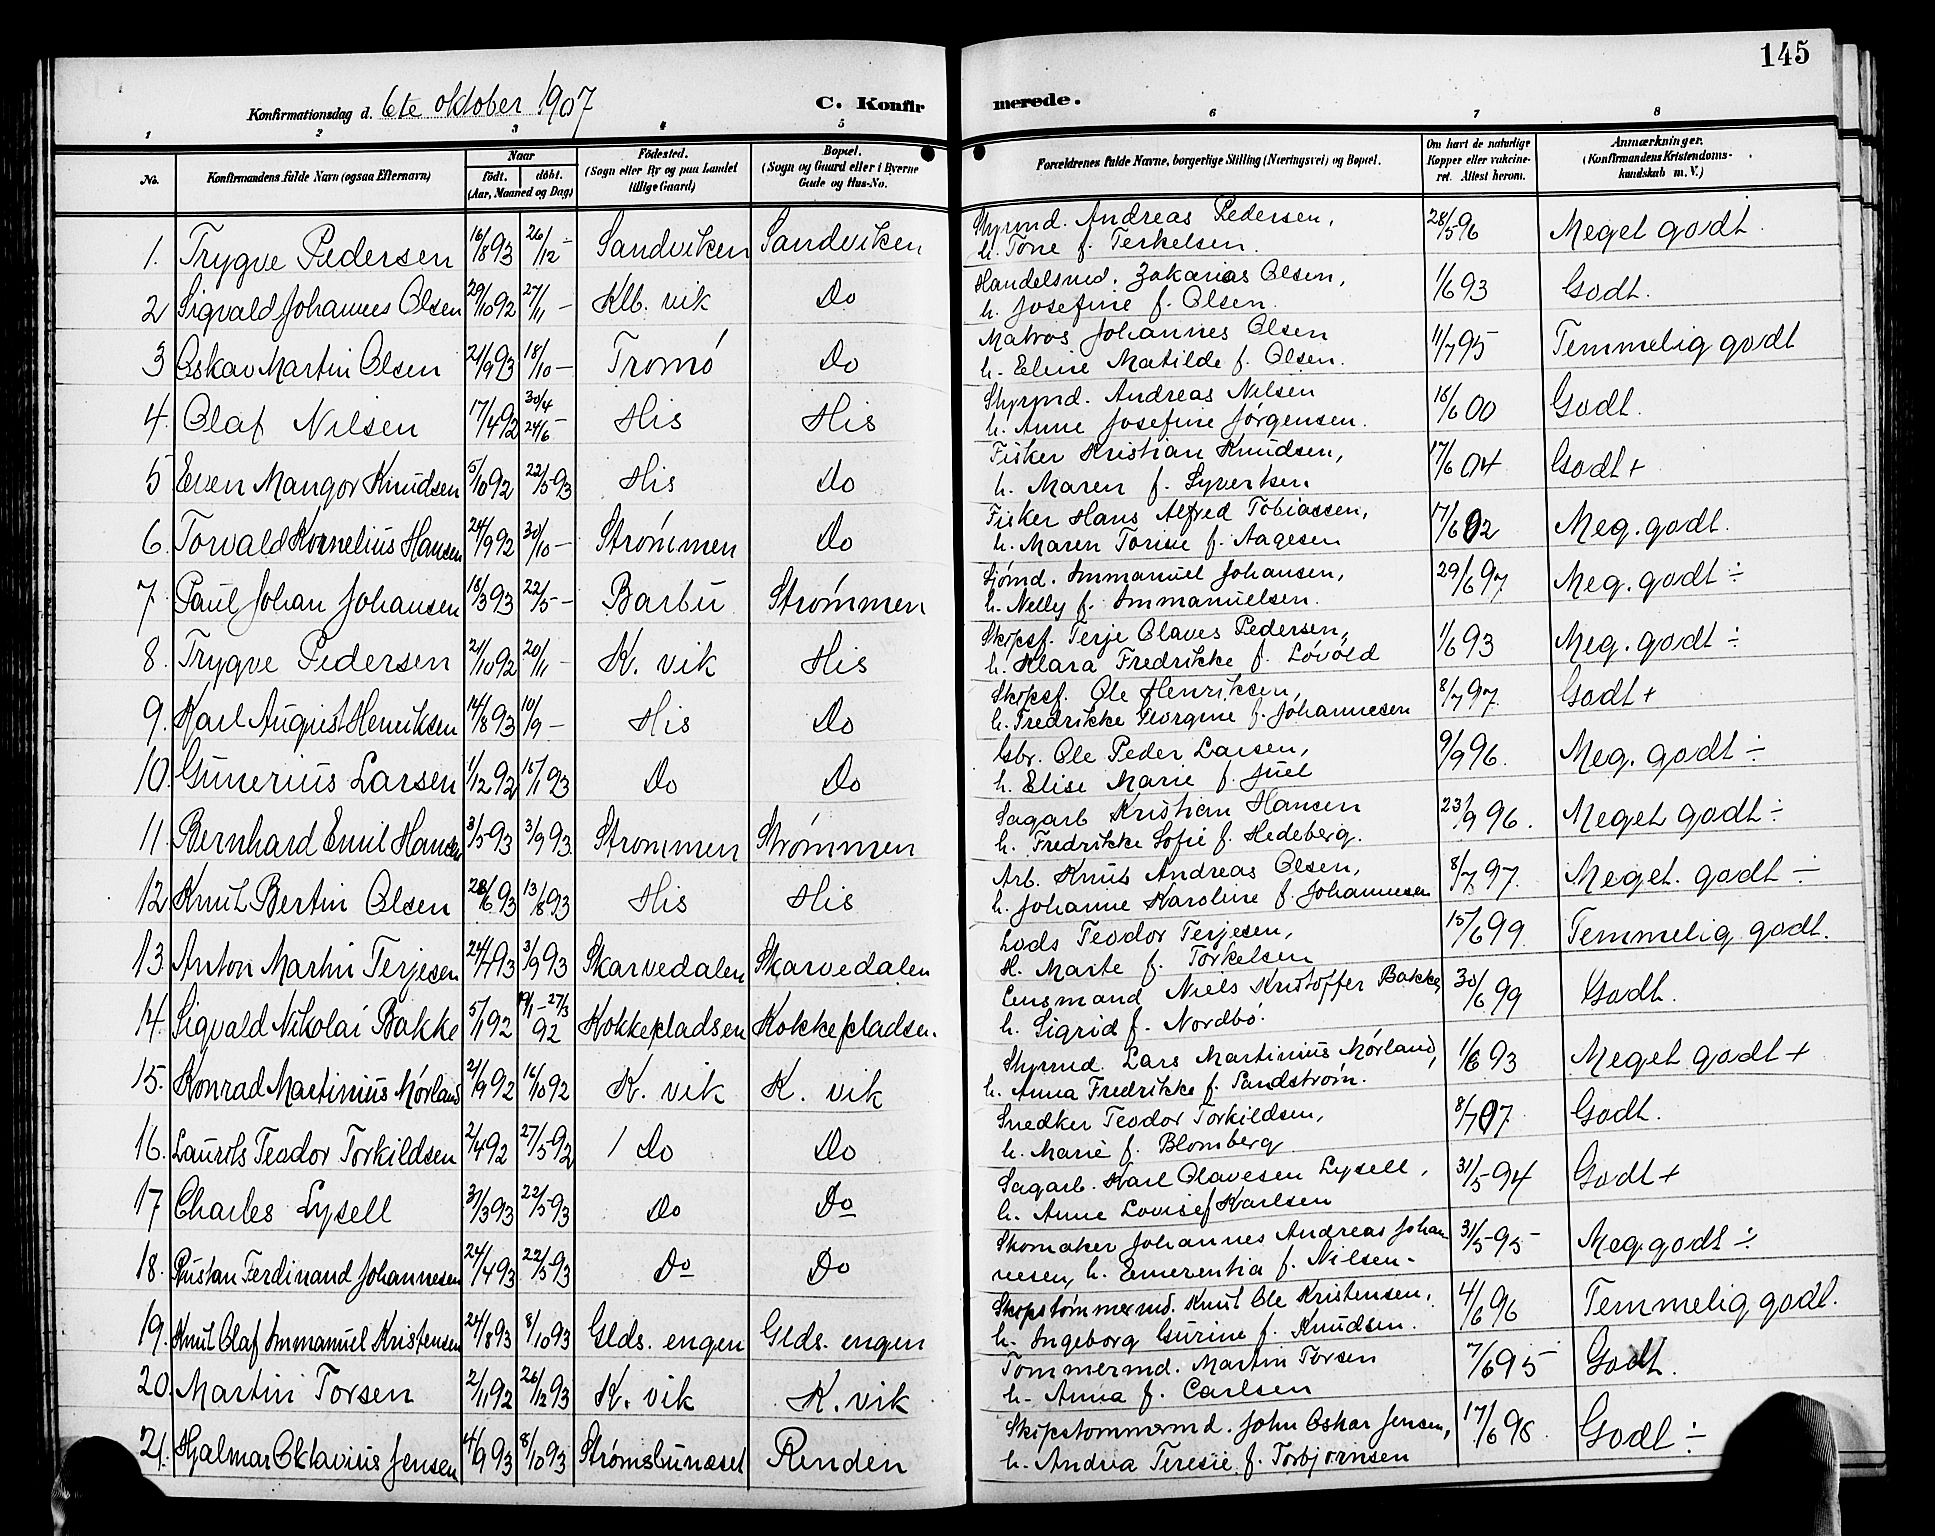 145
Konfirmationsdag d. 6te oktober 1907
C. Konfirmerede.
1 2 3 4 5 6 7 8
No. Konfirmandens fulde Navn (ogsaa Efternavn) Naar født. døbt. (Aar, Maaned og Dag) Fødested. (Sogn eller By og paa Landet tillige Gaard) Bopæl. (Sogn og Gaard eller i Byerne Gade og Hus-No. Forældrenes fulde Navne, borgerlige Stilling (Næringsvei) og Bopæl. Om havt de naturlige Kopper eller vakcineret. Attest herom. Anmærkninger. (Konfirmandens Kristendomskundskab m. V.)
1. Trygve Pedersen 16/8 93 26/12 – Sandviken Sandviken Styrmd. Andreas Pedersen, 28/5 96 Meget godt.
h. Tone f. Terkelsen.
2 Sigvald Johannes Olsen 29/10 92 27/11 – Klb. vik Do Handelsmd. Zakarias Olsen, 1/6 93 Godt.
h. Josefine f. Olsen.
3 Oskar Martin Olsen 21/9 93 18/10 – Tromø Do Matros Johannes Olsen 11/7 95 Temmelig godt
h. Eline Matilde f. Olsen.
4. Olaf Nilsen 17/4 92 30/4 24/6 – His His Styrmd. Andreas Nilsen 18/6 00 Godt.
h. Anne Josefine Jørgensen.
5 Even Mangor Knudsen 5/10 92 22/5 93 His Do Fisker Kristian Knudsen, 17/6 04 Godt +
h. Maren f. Syvertsen
6. Torvald Kornelius Hansen 24/9 92 30/10 – Strømmen Do Fisker Hans Alfred Tobiassen, 17/6 02 Meg. godt.
h. Maren Torine f. Aagesen
7 Paul Johan Johansen 18/3 93 22/5 – Barbu Strømmen Sjømd. Immanuel Johansen, 29/6 97. Meg. godt ÷
h. Nelly f. Immanuelsen.
8. Trygve Pedersen 21/10 92 20/11 – K. vik His Skipsf. Terje Olaves Pedersen, 1/6 93 Meg. godt ÷
h. Klara Fredrikke f. Løvold
9. Karl August Henriksen 14/8 93 10/9 – His Do Skipsf. Ole Henriksen, 8/7 97. Godt +
h. Fredrikke Georgine f. Johannesen
10. Gunerius Larsen 1/12 92 15/1 93 Do Do Gbr. Ole Peder Larsen, 9/9 96. Meg. godt ÷
h. Elise Marie f. Juel
11. Bernhard Emil Hansen 31/5 93 3/9 93 Strømmen Strømmen Sagarb Kristian Hansen 23/9 96. Meget godt ÷
h. Fredrikke Sofie f. Hedeberg.
12 Knut Bertin Olsen 28/6 93 13/8 93 His His Arb. Knut Andreas Olsen, 8/7 97. Meget. godt ÷
h. Johanne Karoline f. Johannesen
13. Anton Martin Terjesen 24/7 93 3/9 93 Skarvedalen Skarvedalen Lods Teodor Terjesen, 15/6 99. Temmelig godt.
H. Marte f. Torkelsen
14. Sigvald Nikolai Bakke 5/1 92 19/1 – 27/3 92 Kokkepladsen Kokkepladsen. Lensmand Niels Kristoffer Bakke, 30/6 99 Godt.
h. Sigrid f. Nordbø.
15. Konrad Martinius Mørland 21/9 92 16/10 92 K. vik K. vik Styrmd. Lars Martinius Mørland, 1/6 93 Meget godt +
h. Anna Fredrikke f. Sandstrøm.
16. Laurits Teodor Torkildsen 2/4 92 27/5 92 Do Do Snedker Teodor Torkildsen, 8/7 07. Godt.
h. Marie f. Blomberg
17 Charles Lysell 31/3 93 22/5 93 Do Do Sagarb. Karl Olavesen Lysell, 31/5 94 Godt +
h. Anne Lovise f Karlsen
18. Kristian Ferdinand Johannesen 24/4 93 22/5 93 Do Do Skomaker Johannes Andreas Johan 31/5 95 Meg. godt ÷
nesen, h. Emerentia f. Nilsen –
19. Knut Olaf Immanuel Kristensen 24/8 93 8/10 93 Glds. engen Glds. engen Skipstømmermd. Knut Ole Kristensen, 4/6 96 Temmelig godt.
h. Ingeborg Gurine f. Knudsen.
20. Martin Torsen 2/11 92 26/12 93 K. vik K. vik Tømmermd. Martin Torsen 7/6 95 Godt.
h. Anna f. Carlsen
21. Hjalmar Oktavius Jensen 4/9 93 8/10 93 Strømsbunæset Renden Skipstømmermd. John Oskar Jensen, 17/6 98. Godt ÷
h. Andrea Teresie f. Torbjørnsen